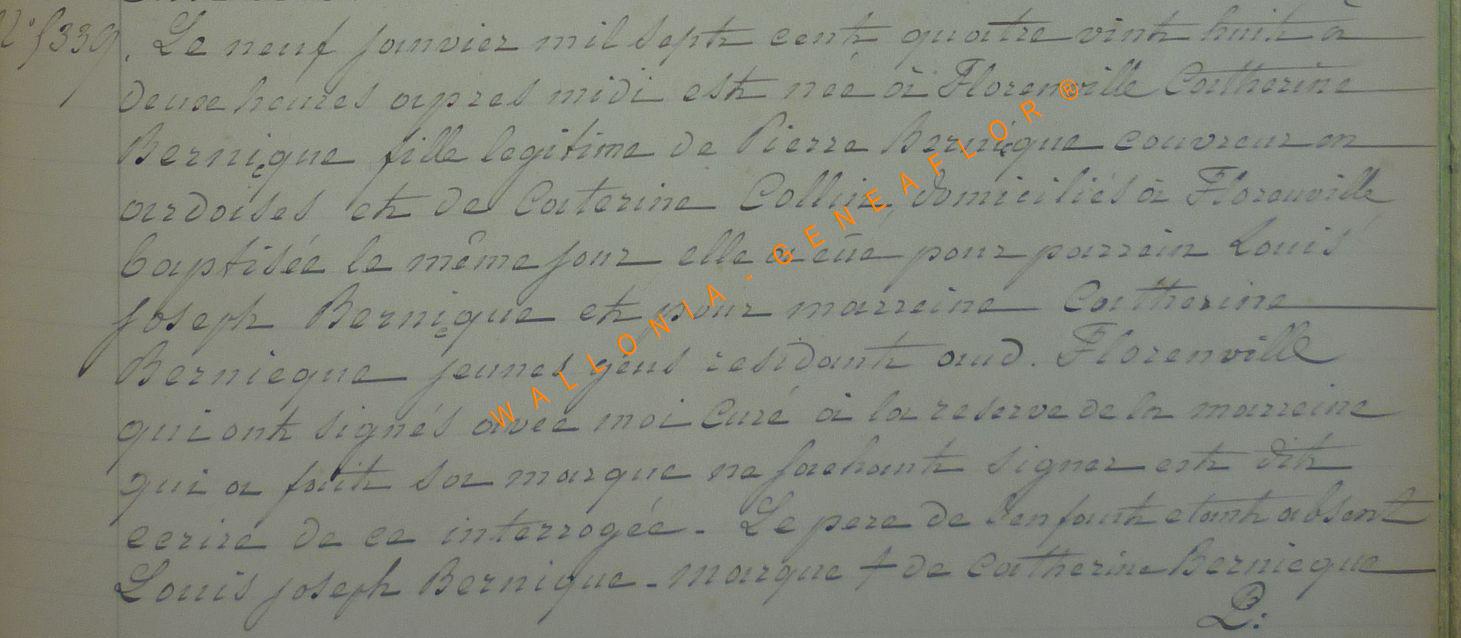 N° 5339. Le neuf janvier mil sept cent quatre vint huit à
deux heures apres midi est née à Florenville Catherine
Bernicque fille legitime de Pierre Bernicque couvreur en
ardoises et de Caterine Collin, domiciliés à Florenville
baptisée le même jour elle a eüe pour parrein Louis
joseph Bernicque et pour marreine Catherine
Bernieque jeunes gens residant aud. Florenville
qui ont signés avec moi Curé à la reserve de la marreine
qui a fait sa marque ne sachant signer est dit
ecrire de ce interrogée - Le pere de l'enfant etant absent
Louis joseph Bernique - marque + de Catherine Bernieque
P:
WALLONIA-GENEAFLOR®